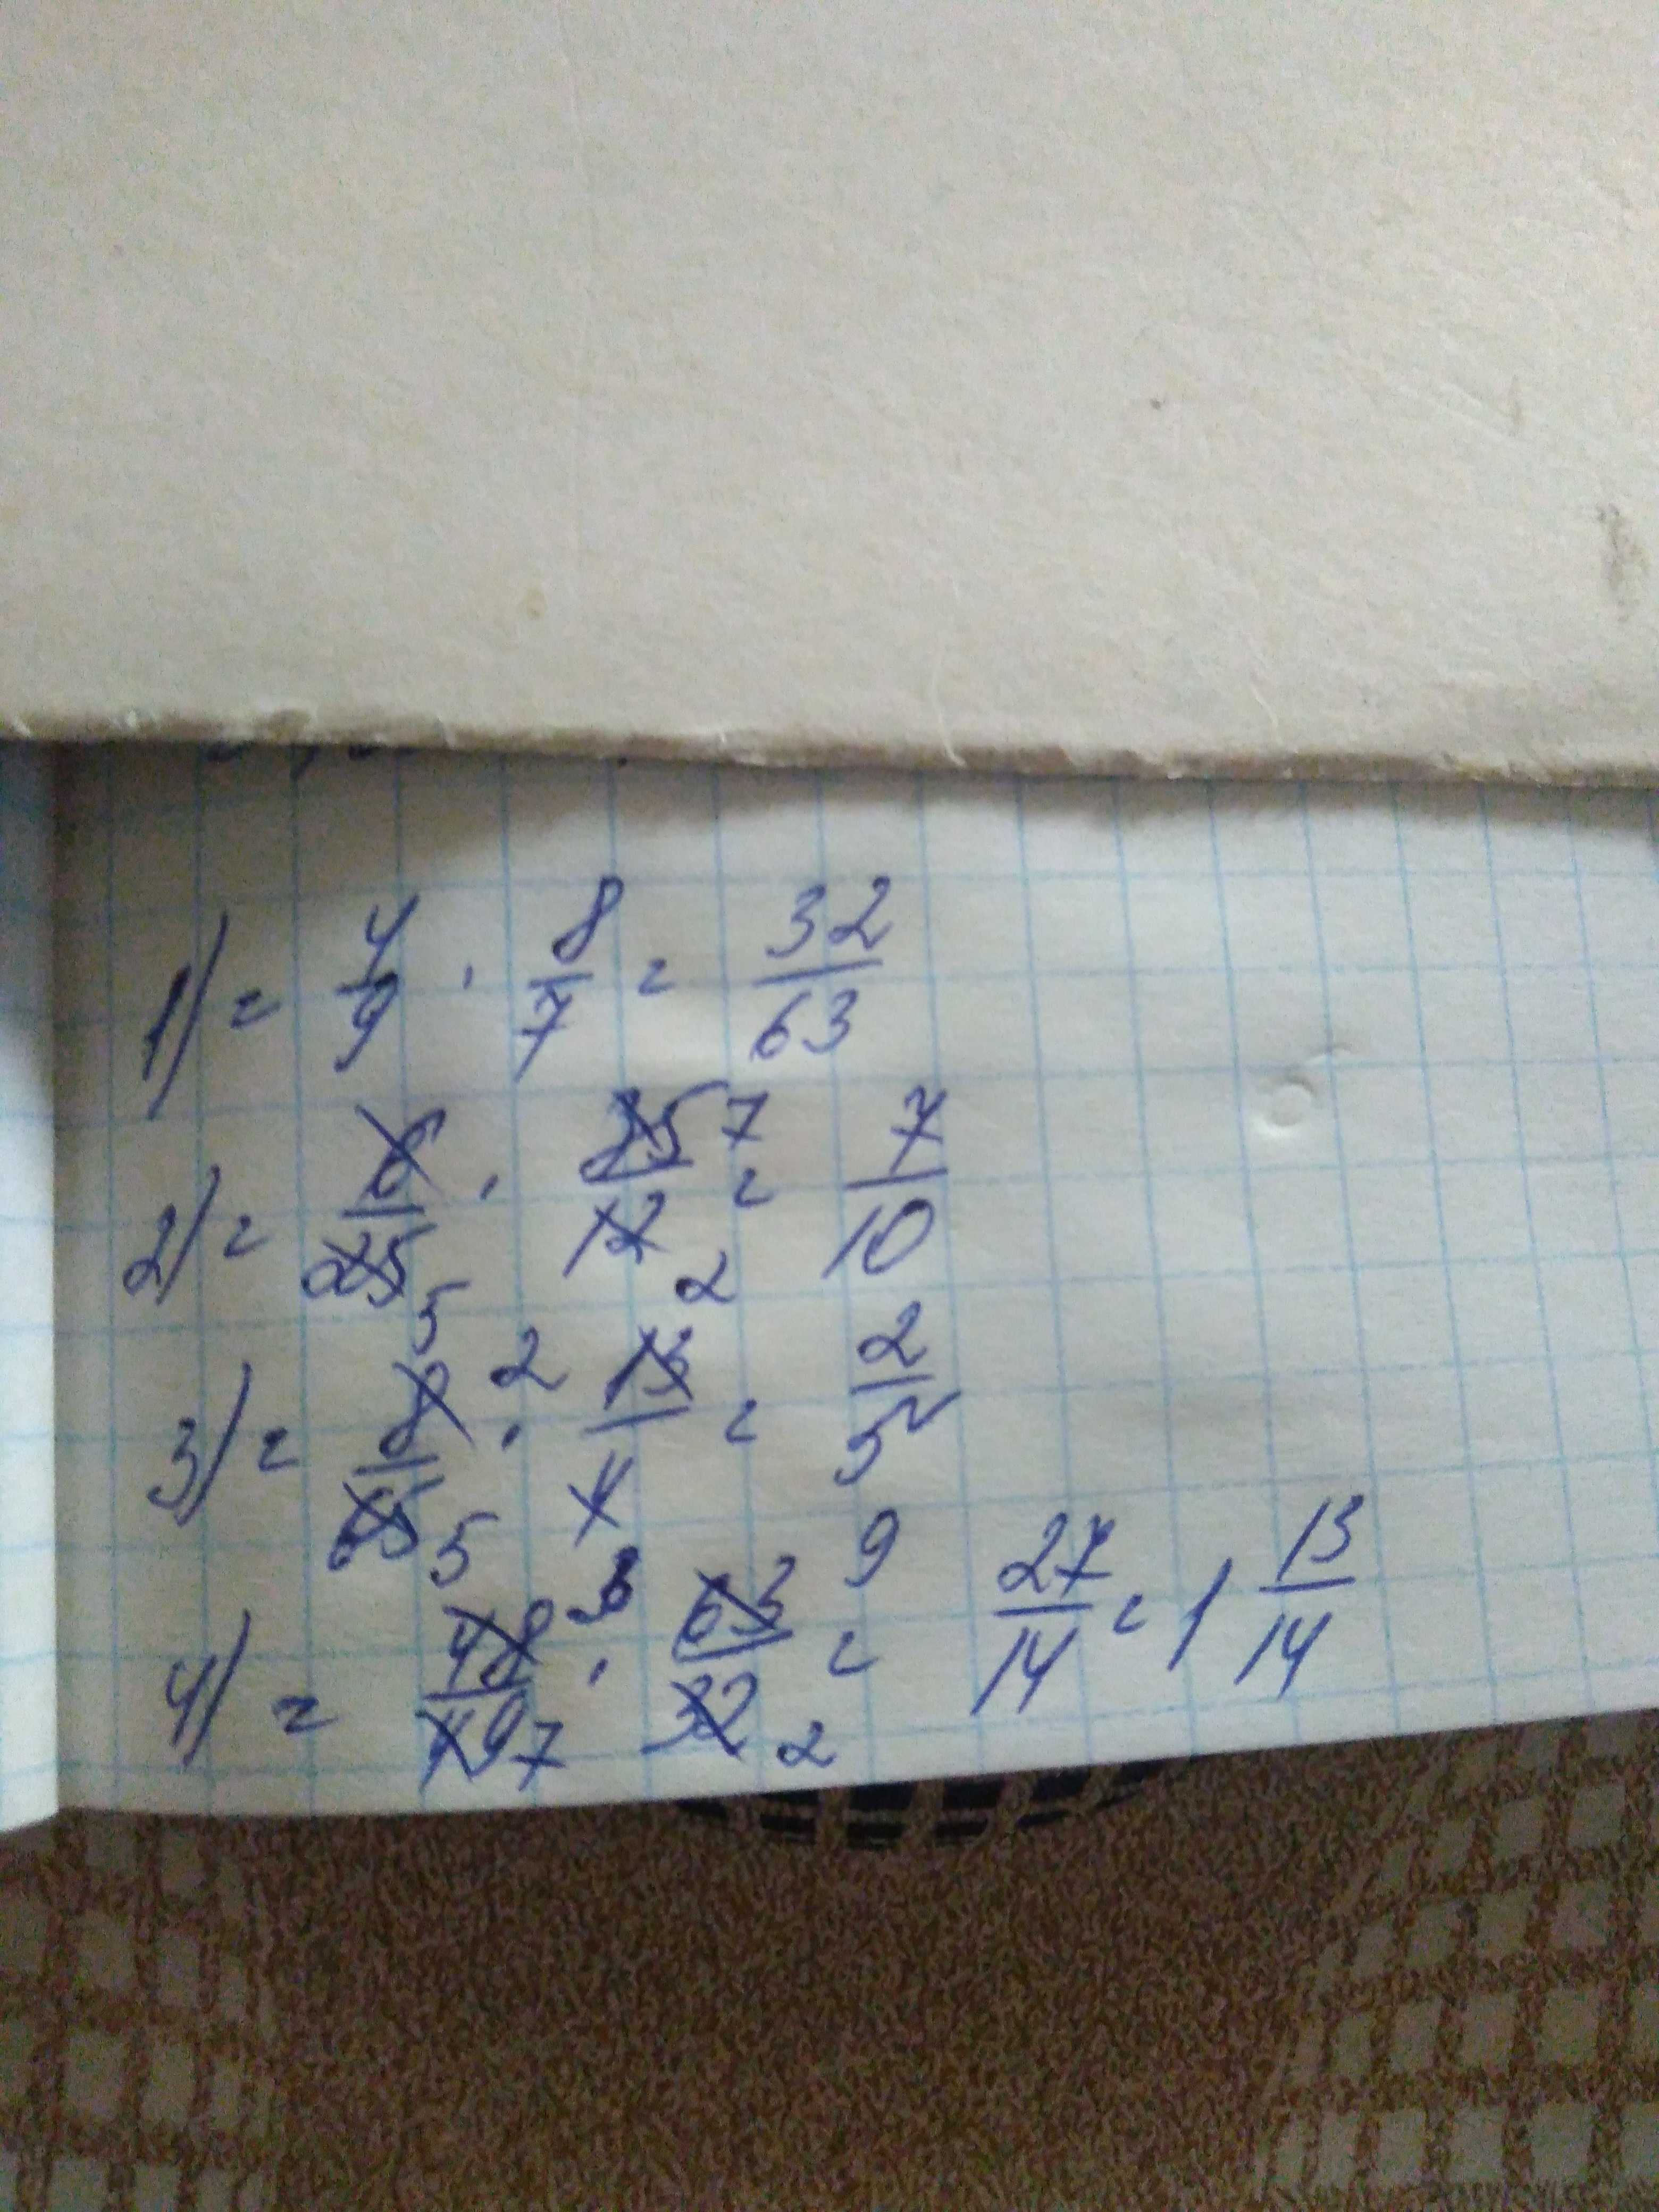 1) = 4/9 · 8/7 = 32/63
2) = 6/25 5 · 35 7/12 2 = 7/10
3) = 8 2/65 5 · 13/4 = 2/5
4) = 48 3/49 7 · 63 9/32 2 = 27/14 = 1 13/14